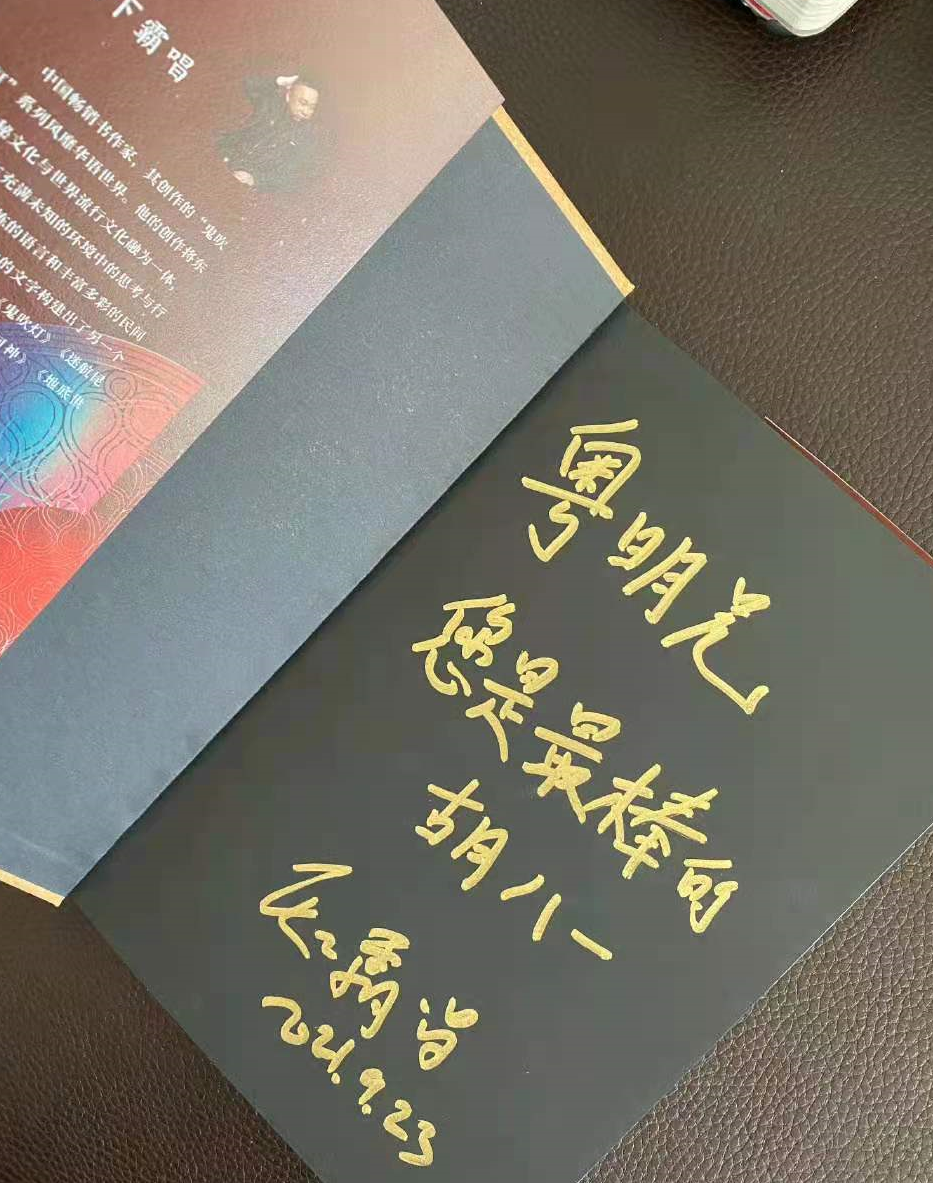 下霸唱
中国畅销书作家,其创作的“鬼吹
灯”系列风靡华语世界。他的创作将东
秘文化与世界流行文化融为一体,
充满未知的环境中的思考与行
练的语言和丰富多彩的民间
的文字构建出了另一个
《鬼吹灯》《迷航昆
神》《地底世
粤明羌
您是最棒的
胡八一
天下霸唱
2021.9.23